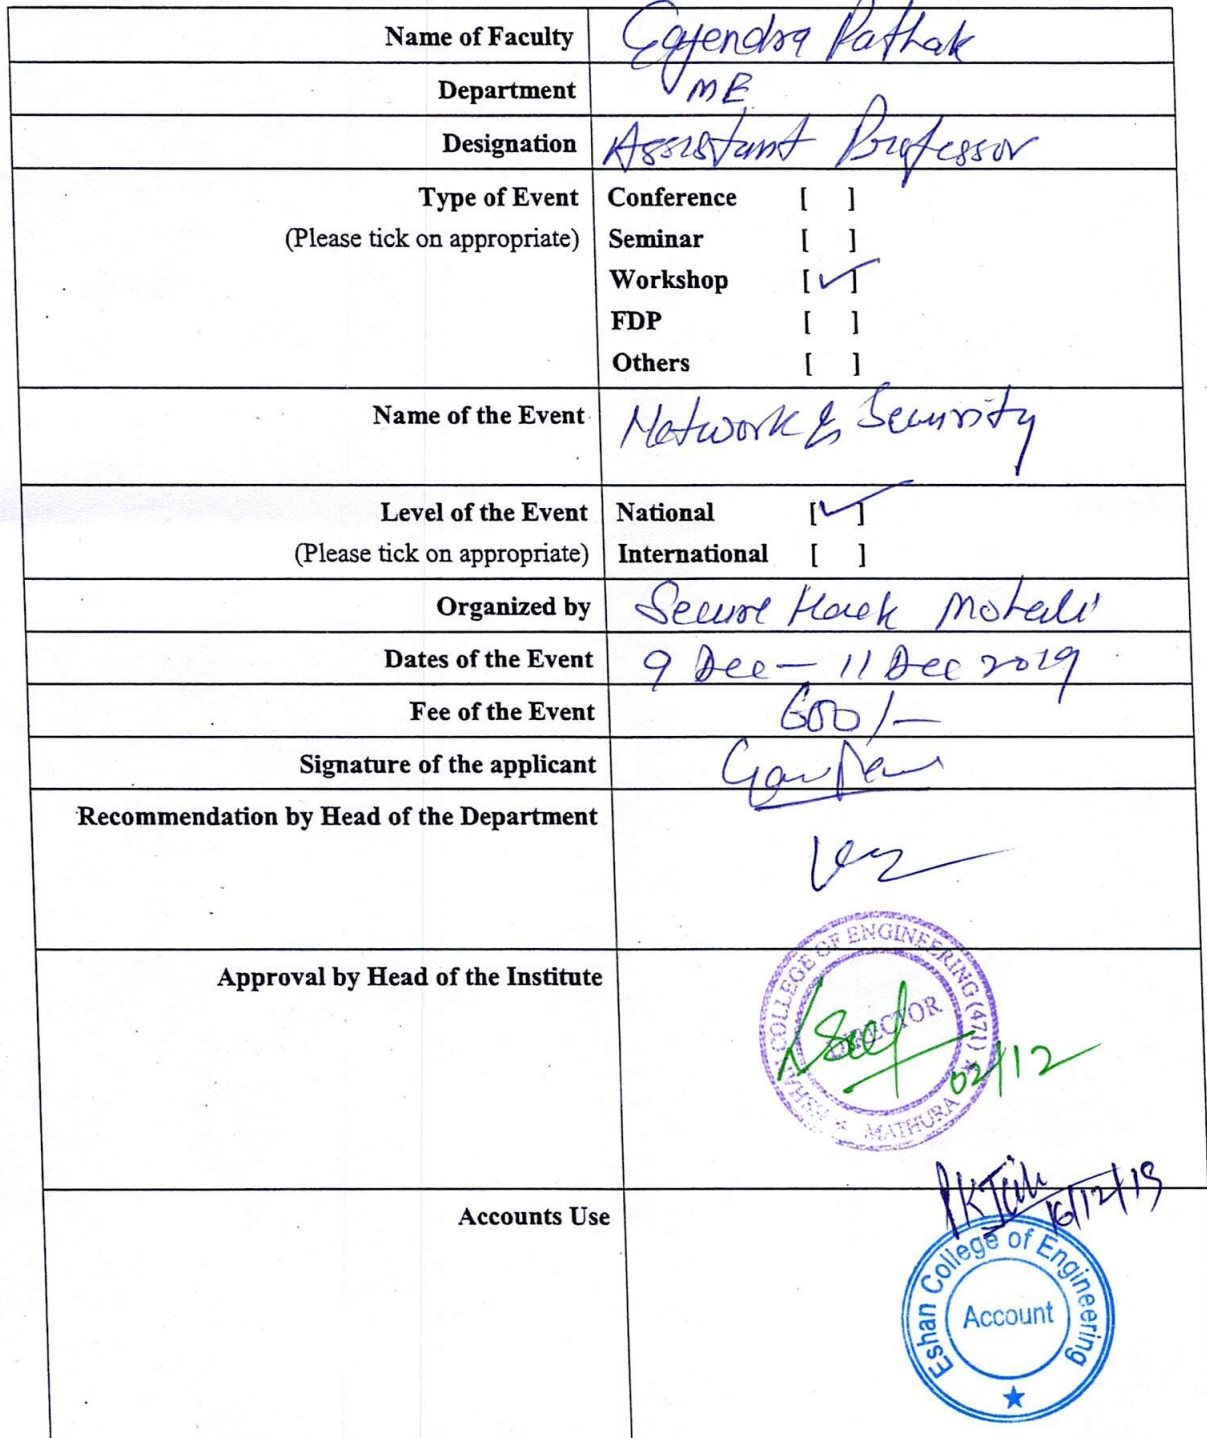 Name of Faculty Gajendra Pathak
Department ME
Designation Assistant Professor
Type of Event Conference [ ]
(Please tick on appropriate) Seminar [ ]
Workshop [✓]
FDP [ ]
Others [ ]
Name of the Event Network & Security
Level of the Event National [✓]
(Please tick on appropriate) International [ ]
Organized by Secure Hack Mohali
Dates of the Event 9 Dec – 11 Dec 2019
Fee of the Event 600/-
Signature of the applicant
Recommendation by Head of the Department
Approval by Head of the Institute
ESHAN COLLEGE OF ENGINEERING (471) ★ MATHURA ★
DIRECTOR
02/12
PKJain
16/12/19
Accounts Use
Eshan College of Engineering
Account
★